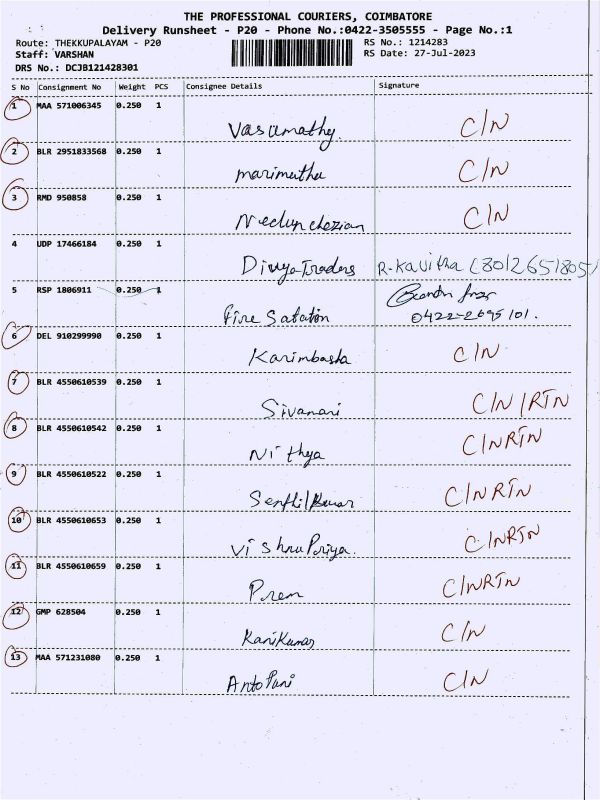 THE PROFESSIONAL COURIERS, COIMBATORE
Delivery Runsheet - P20 - Phone No.:0422-3505555 - Page No.:1
Route: THEKKUPALAYAM - P20
Staff: VARSHAN
DRS No.: DCJB121428301
RS No.: 1214283
RS Date: 27-Jul-2023
S No Consignment No Weight PCS Consignee Details Signature
1 MAA 571006345 0.250 1
Vasumathy C/N
2 BLR 2951833568 0.250 1
marimuthu C/N
3 RMD 950858 0.250 1
Nedunchezian C/N
4 UDP 17466184 0.250 1
Divya Traders R-Kavitha (8012651805)
5 RSP 1806911 0.250 1
Fire Satation 0422-2695101.
6 DEL 910299990 0.250 1
Karimbasha C/N
7 BLR 4550610539 0.250 1
Sivanari C/N/RTN
8 BLR 4550610542 0.250 1
Nithya C/NRTN
9 BLR 4550610522 0.250 1
Senthilkumar C/NRTN
10 BLR 4550610653 0.250 1
VishnuPriya. C/NRTN
11 BLR 4550610659 0.250 1
Prem C/NRTN
12 GMP 628504 0.250 1
KaniKumar C/N
13 MAA 571231080 0.250 1
Anto Pani C/N